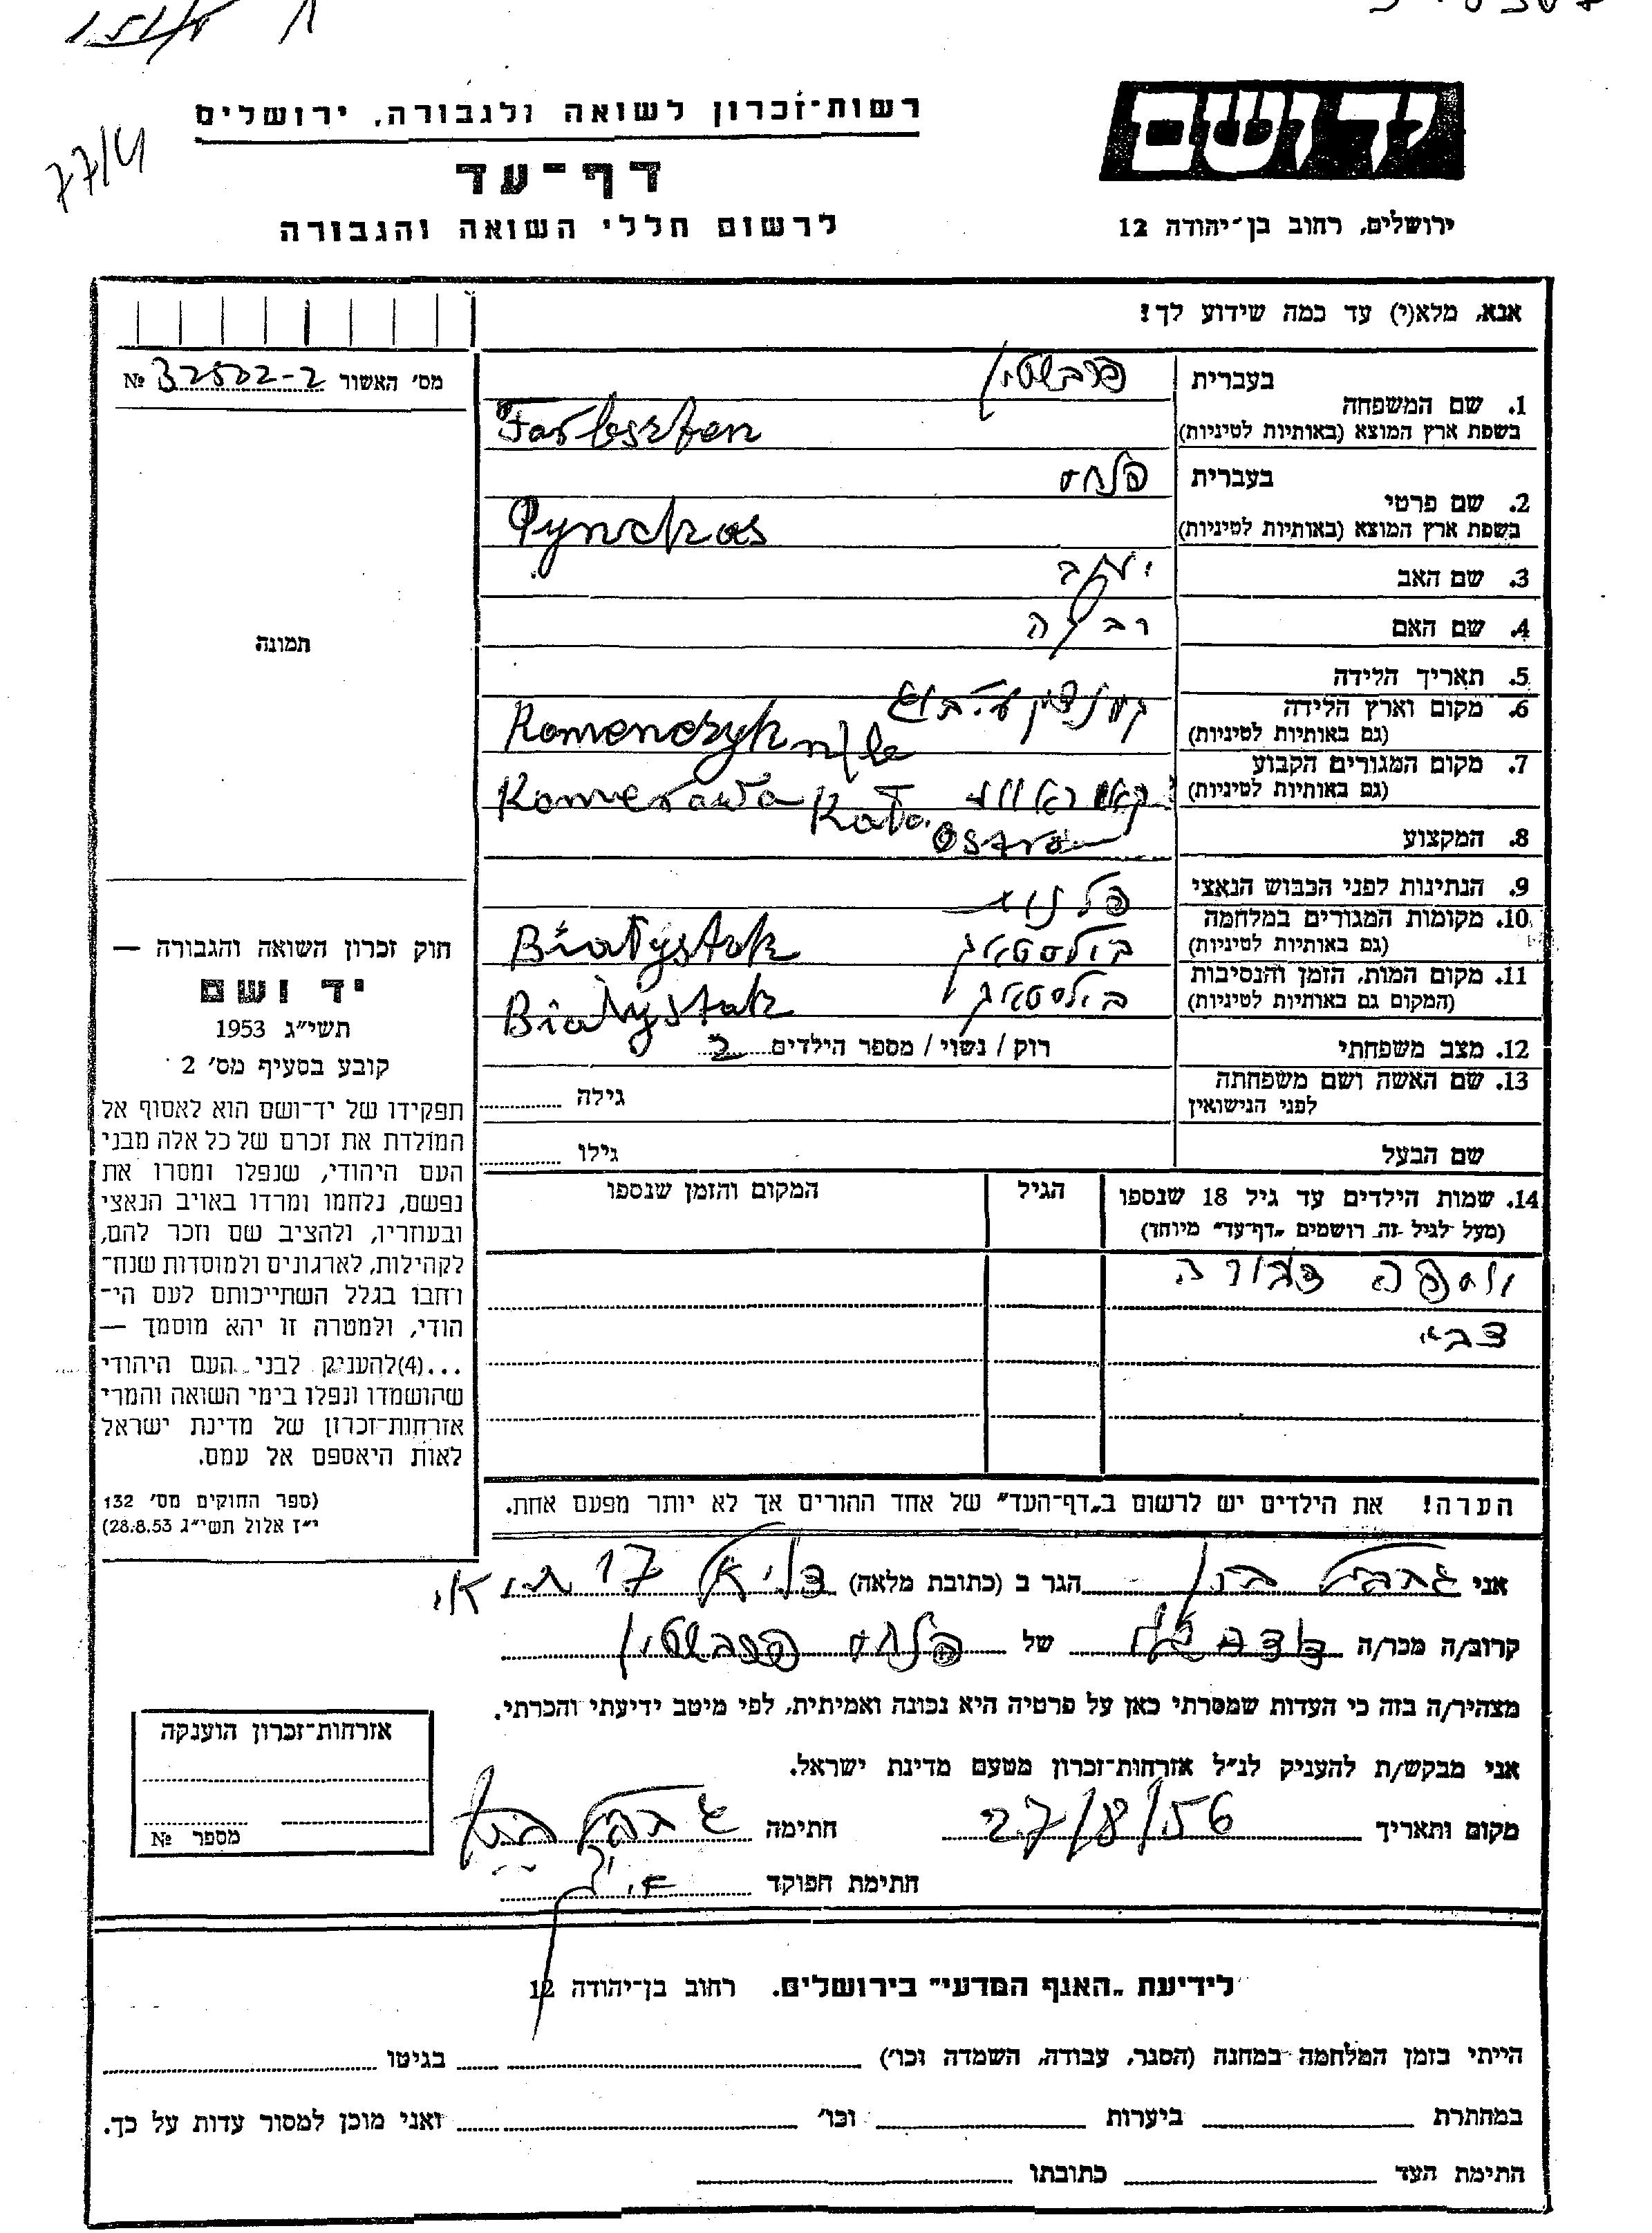 77/4
יד ושם
ירושלים, רחוב בן־יהודה 12
רשות־זכרון לשואה ולגבורה, ירושלים
דף־עד
לרשום חללי השואה והגבורה
אנא, מלא(י) עד כמה שידוע לך!
מס׳ האשור № 32502-2
תמונה
חוק זכרון השואה והגבורה —
יד ושם
תשי״ג 1953
קובע בסעיף מס׳ 2
תפקידו של יד־ושם הוא לאסוף אל
המולדת את זכרם של כל אלה מבני
העם היהודי, שנפלו ומסרו את
נפשם, נלחמו ומרדו באויב הנאצי
ובעוזריו, ולהציב שם וזכר להם,
לקהילות, לארגונים ולמוסדות שנח־
רחבו בגלל השתייכותם לעם הי־
הודי, ולמטרה זו יהא מוסמך —
...(4)להעניק לבני העם היהודי
שהושמדו ונפלו בימי השואה והמרי
אזרחות־זכרון של מדינת ישראל
לאות היאספם אל עמם.
(ספר החוקים מס׳ 132
י״ז אלול תשי״ג 28.8.53)
1. שם המשפחה
בעברית פרבשטין
בשפת ארץ המוצא (באותיות לטיניות) Farbszten
2. שם פרטי
בעברית פנחס
בשפת ארץ המוצא (באותיות לטיניות) Pynchos
3. שם האב יעקב
4. שם האם רבקה
5. תאריך הלידה
6. מקום וארץ הלידה
(גם באותיות לטיניות) Romenczyk n/
7. מקום המגורים הקבוע
(גם באותיות לטיניות) Komerawa Koło
Ostrow
8. המקצוע
9. הנתינות לפני הכבוש הנאצי פולנית
10. מקומות המגורים במלחמה
(גם באותיות לטיניות) ביאליסטוק Białystok
11. מקום המות, הזמן והנסיבות
(המקום גם באותיות לטיניות) ביאליסטוק Białystok
12. מצב משפחתי רוק / נשוי / מספר הילדים 2
13. שם האשה ושם משפחתה
לפני הנישואין גילה
שם הבעל גילו
14. שמות הילדים עד גיל 18 שנספו הגיל המקום והזמן שנספו
(מעל לגיל זה רושמים „דף־עד״ מיוחד)
דבורה
צבי
הערה! את הילדים יש לרשום ב„דף־העד״ של אחד ההורים אך לא יותר מפעם אחת.
אני הגר ב (כתובת מלאה) 17
קרוב/ה מכר/ה של פנחס פרבשטין
מצהיר/ה בזה כי העדות שמסרתי כאן על פרטיה היא נכונה ואמיתית, לפי מיטב ידיעתי והכרתי.
אני מבקש/ת להעניק לנ״ל אזרחות־זכרון מטעם מדינת ישראל.
מקום ותאריך 27/8/56 חתימה
חתימת הפוקד
אזרחות־זכרון הוענקה
מספר №
לידיעת „האגף המדעי״ בירושלים. רחוב בן־יהודה 12
הייתי בזמן המלחמה במחנה (הסגר, עבודה, השמדה וכו׳) בגיטו
במחתרת ביערות וכו׳ ואני מוכן למסור עדות על כך.
חתימת העד כתובתו